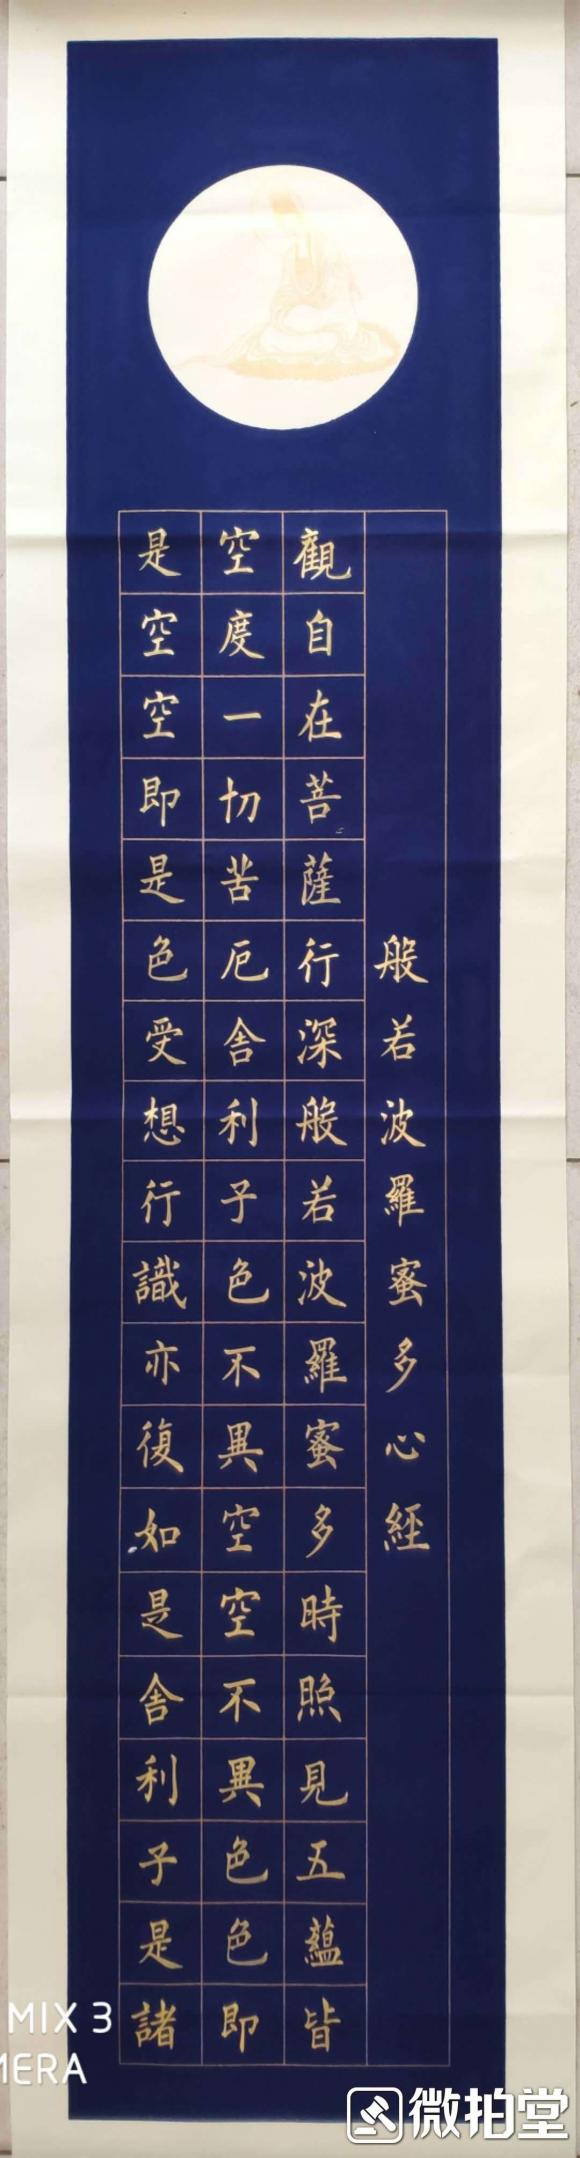 般若波羅蜜多心經
觀自在菩薩行深般若波羅蜜多時照見五蘊皆
空度一切苦厄舍利子色不異空空不異色色即
是空空即是色受想行識亦復如是舍利子是諸
MIX 3
MERA
微拍堂